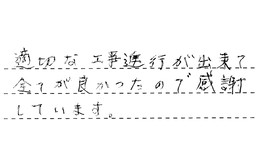 適切な工事進行が出来て
全てが良かったので感謝
しています。